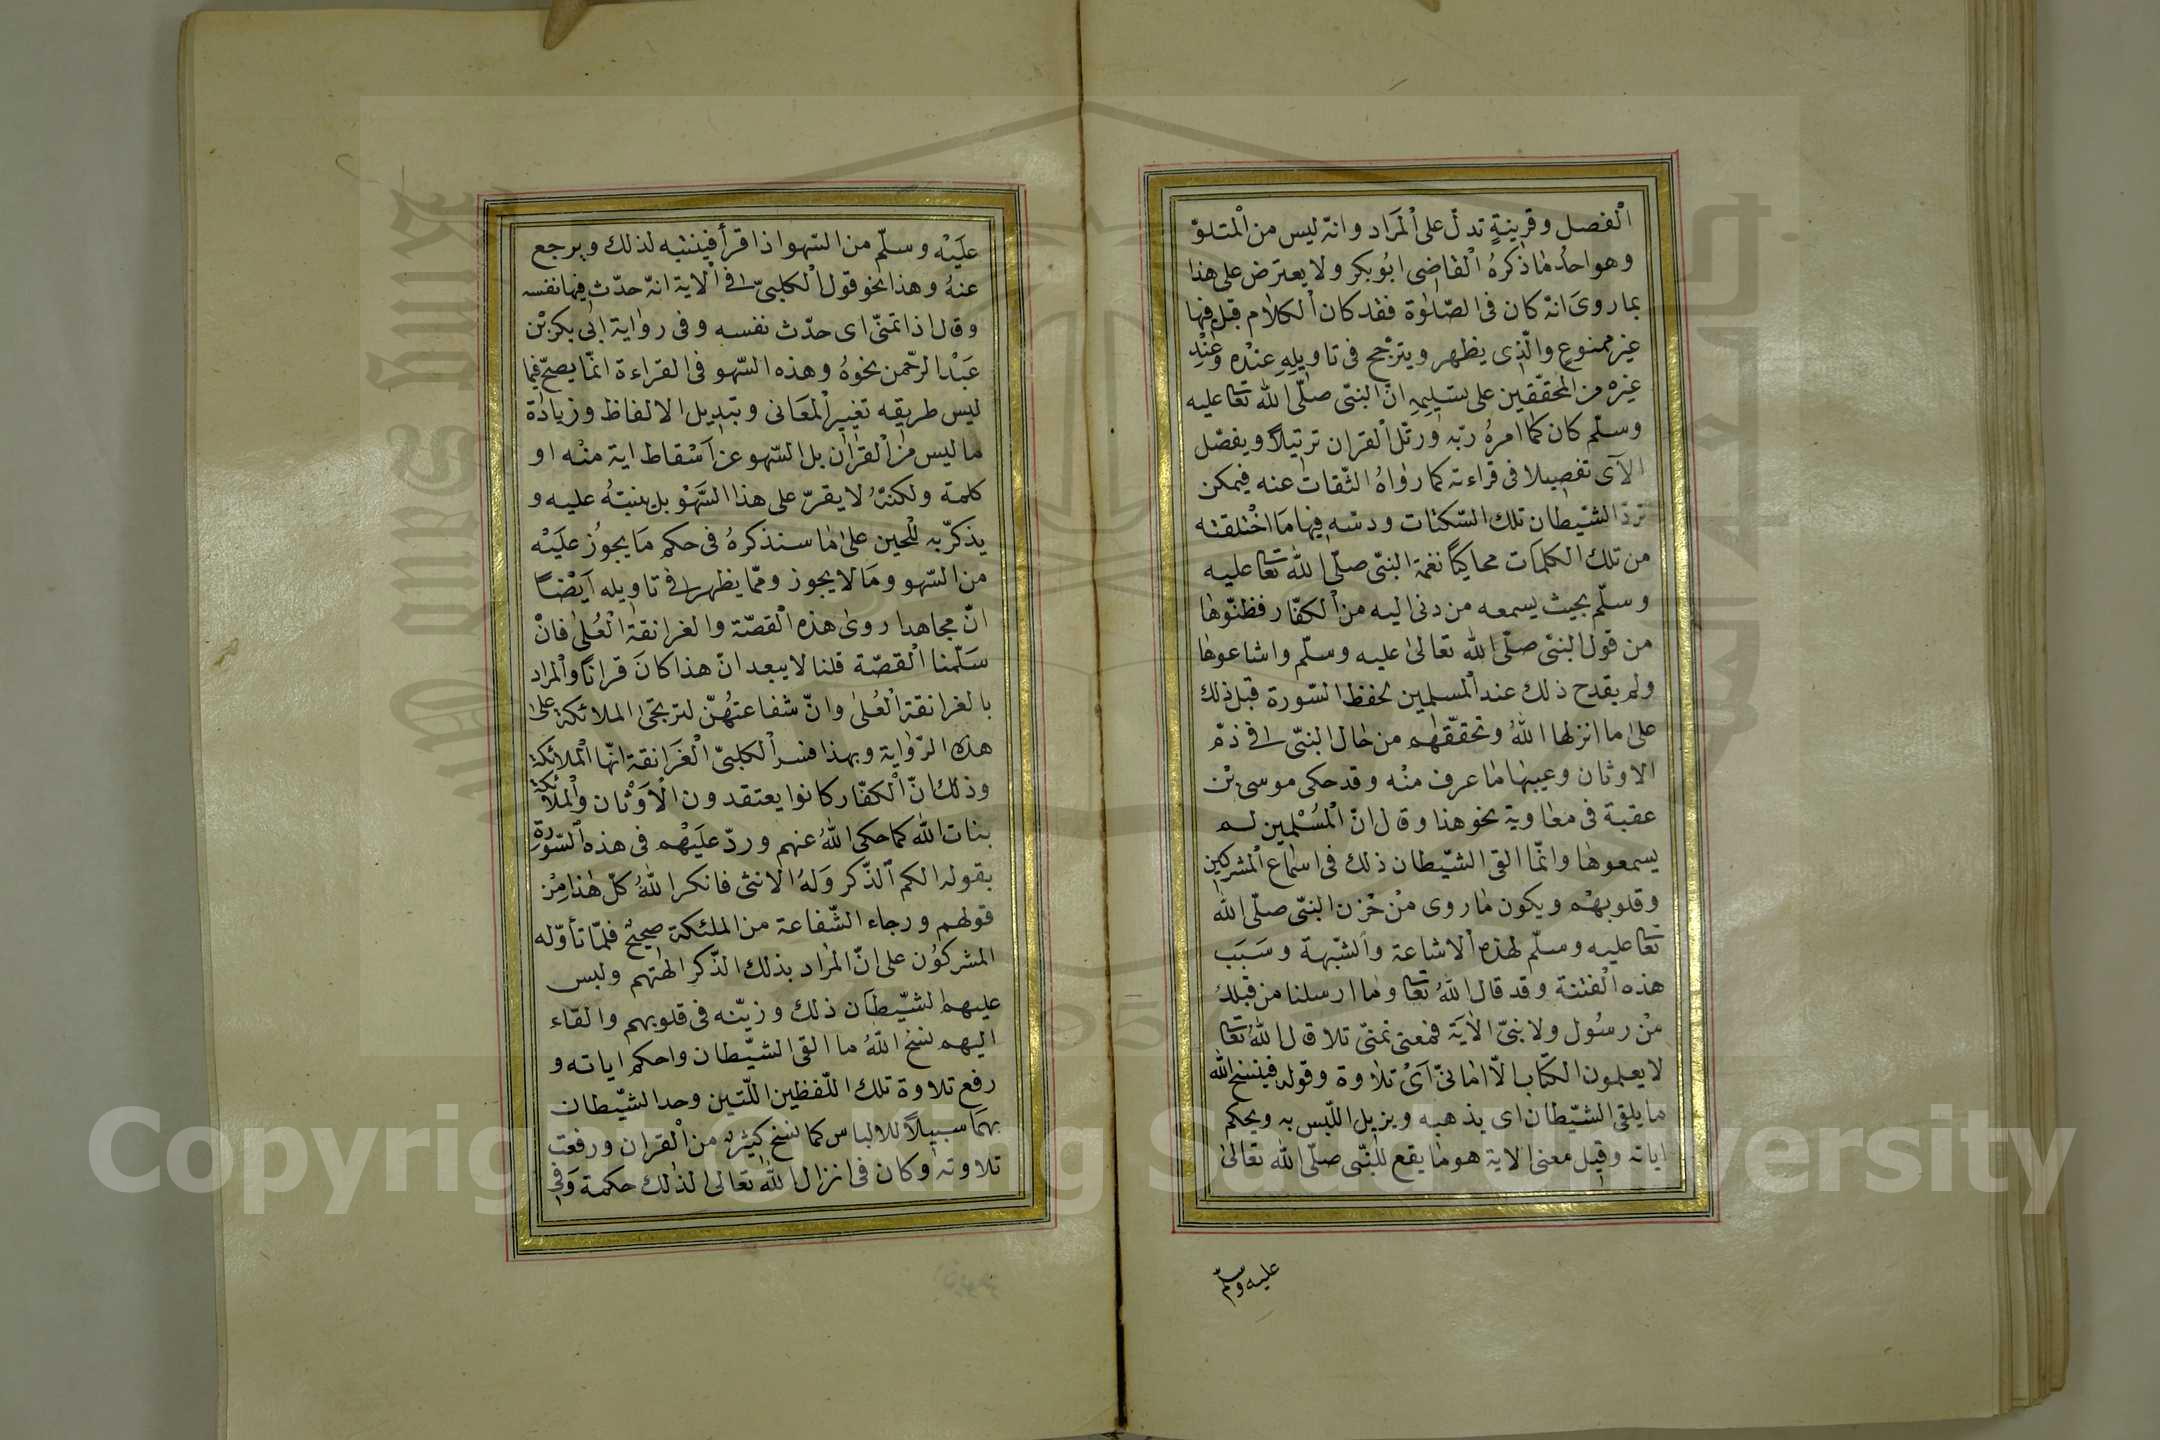 الْفصل وقرينةٍ تدلّ على الْمَراد وانّه ليس من الْمتلوّ
وهو احدُ ماذكرهُ الْقاضى ابُوبكر ولا يعترض على هذا
بما روىَ انّه كان فى الصّلوٰة فقد كان الْكلام قبل فيها
غير ممنوعٍ والّذى يظهر ويترجّح فى تاويلهِ عنْده وعنْد
غيْره من الْمحقّقين على تسْليمِهِ انّ النبّى صلّى الله تعا عليه
وسلّم كان كما امرهُ ربّه ورتّل الْقران ترتيلاً ويفصّل
الآى تفصيلا فى قراءته كما رواهُ الثّقات عنه فيمكن
تردّ الشيّطان تلك السّكتات ودسّه فيها مَا اخْتلقته
من تلك الكلمَات محاكيًا نغمة النبّى صلّى الله تعا عليه
وسلّم بحيث يسمعه من دنى اليه من الْكفّار فظنّوها
من قول النبّى صلّى الله تعالىٰ عليه وسلّم واشاعوها
ولم يقدح ذلك عند الْمسلمين بحفظ السّورة قبل ذلك
علىٰ ما انزلها اللهُ وتحقّقهم من حال النبّى فى ذمّ
الاوثان وعيبها ما عرف منْه وقد حكى موسى بْن
عقبة فى مغاوية نحو هذا وقال انّ الْمُسْلمين لم
يسمعوها وانّما القى الشيّطان ذلك فى اسْماع الْمشركين
وقلوبهْم ويكون ما روى منْ حْزن النبّى صلّى الله
تعا عليه وسلّم لهذه الْاشاعة والشّبهة وسَبَب
هذه الْفتنة وقد قال اللهُ تعا وما ارسلنا من قبلك
منْ رسُول ولا نبىّ الاٰيَة فمعنى تمنىّ تلا قال اللهُ تعا
لا يعلمون الكتّاب الّا امانىّ اَىْ تلاوة وقوله فينسخ الله
ما يلقى الشيّطان اى يذهبه ويزيل اللّبس به ويحكم
اياته وقيل معنى الاية هو ما يقع للنبّى صلّى الله تعالىٰ
عليه وسلّم
عليَْه وسلّم من السّهو اذا قرأ فينتبه لذلك ويرجع
عنهُ وهذا نحو قول الْكلبىّ فى الْاية انّه حدّث فيها نفسه
وقال اذا تمنىّ اى حدّث نفسه وفى رواية ابى بكر بْن
عَبْد الرحّمن نحوهُ وهذه السّهو فى القراءة انّما يصحّ فيما
ليس طريقه تغيير الْمعَانى وتبديل الالفاظ وزيادة
ما ليس من الْقران بل السّهو عن اَسْقاط اية منْه او
كلمة ولكنّهُ لا يقرّ على هذا السَّهْو بل ينبّهُ عليه و
يذكّر به للْحين علىٰ ما سنذكرهُ فى حكم مَا يجوزُ عليَْه
من السّهو ومَا لا يجوز وممّا يظهر فى تاويله اَيْضًا
انّ مجاهدا روىٰ هذه الْقصّة والغرانقة الْعُلىٰ فانْ
سَلّمنا الْقصّة قلنا لا يبعد انّ هذا كانَ قرانًا والْمراد
بالغرانقة الْعُلىٰ وانّ شفاعتهُنّ لترتجىٰ الملائكة علىٰ
هذه الرّواية وبهذا فسر الْكلبىّ الْغَرانقة انّها الْملائكة
وذلك انّ الْكفّار كانوا يعتقدون الْاَوْثان والْملائكة
بنات الله كما حكى اللهُ عنهم وردّ عليَْهم فى هذه السّورة
بقوله الكم الذّكر وَلهُ الانثى فانكر اللهُ كلّ هذا منْ
قولهم ورجاء الشّفاعة من الملئكة صحيح فلمّا تأوّله
المشركوُن على انّ الْمراد بذلك الذّكر الهتهم ولبس
عليهم الشيّطان ذلك وزيّنه فى قلوبهم والقاء
اليهم نسخ اللهُ ما القى الشيّطان واحكم اياته و
رفع تلاوة تلك اللّفظين اللّتين وجد الشيّطان
بهمَا سبيلاً للالباس كما نسخ كثيرٌ من الْقران ورفعت
تلاوته وكان فى انزال الله تعالى لذلك حكمة وَفى
Copyright © King Saud University